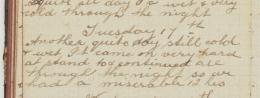 quiet all day & wet & very
cold through the night
Tuesday 17th
Another quite day still cold
& wet it came on very hard
at stand to & continued all
through the night so we
had a miserable